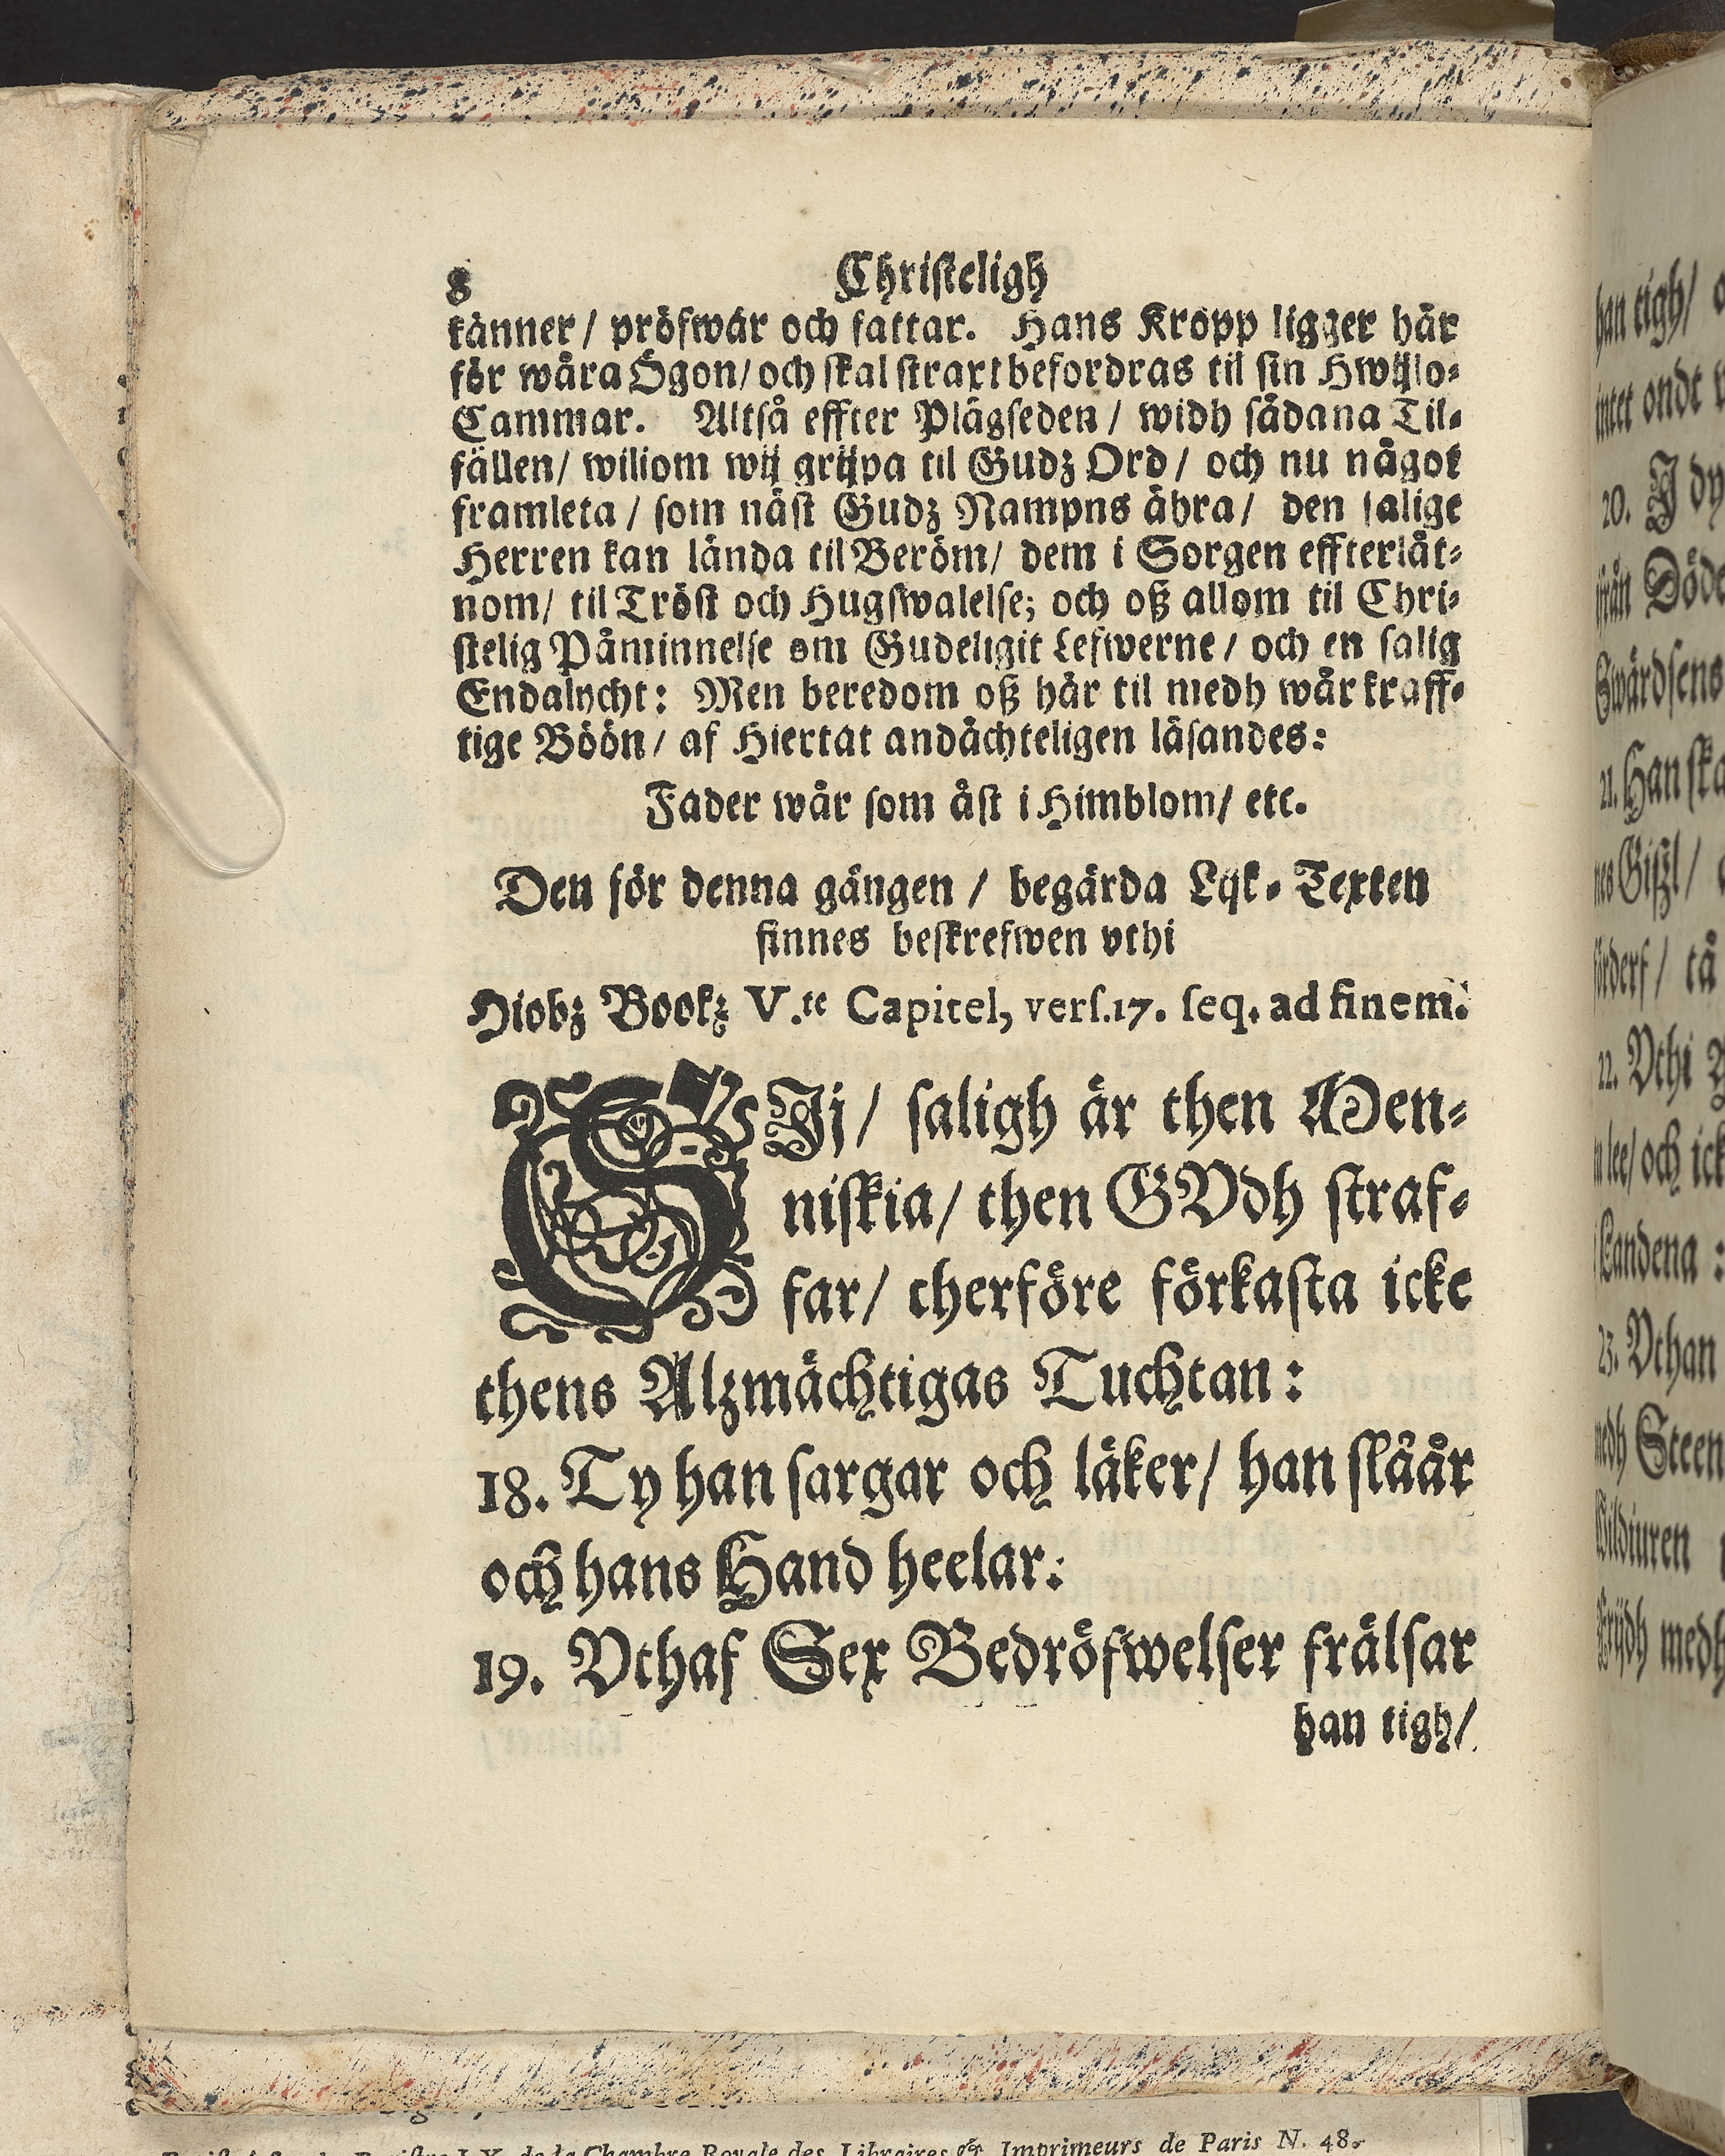 8 Christeligh
känner / pröfwar och fattar. Hans Kropp ligger här
för wåra Ögon / och skal straxt befordras til sin Hwijlo-
Cammar. Altså effter Plägseden / widh sådana Til-
fällen / wiliom wij grijpa til Gudz Ord / och nu något
framleta / som näst Gudz Nampns ähra / den salige
Herren kan lända til Beröm / dem i Sorgen effterlåt-
nom / til Tröst och Hugswalelse; och oß allom til Chri-
stelig Påminnelse om Gudeligit Lefwerne / och en salig
Endalycht: Men beredom oß här til medh wår kraff-
tige Böön / af Hiertat andächteligen läsandes:
Fader wår som äst i Himblom / etc.
Den för denna gången / begärda Lijk-Texten
finnes beskrefwen vthi
Hiobz Bookz V.te Capitel, vers.17. seq. ad finem.
SIj / saligh är then Men-
niskia / then GVdh straf-
far / therföre förkasta icke
thens Alzmächtigas Tuchtan:
18. Ty han sargar och läker / han slåår
och hans Hand heelar:
19. Vthaf Sex Bedröfwelser frälsar
han tigh /
han tigh /
intet ondt
20. I dy
ifrån Döde
Swärdsens
21. Han ska
nes Gißl /
förderf / tå
22. Vthi
lee / och ick
Landena :
23. Vthan
medh Steen
Wildiuren
Frijdh medh
de la Chambre Royale des Libraires & Imprimeurs de Paris N. 48.